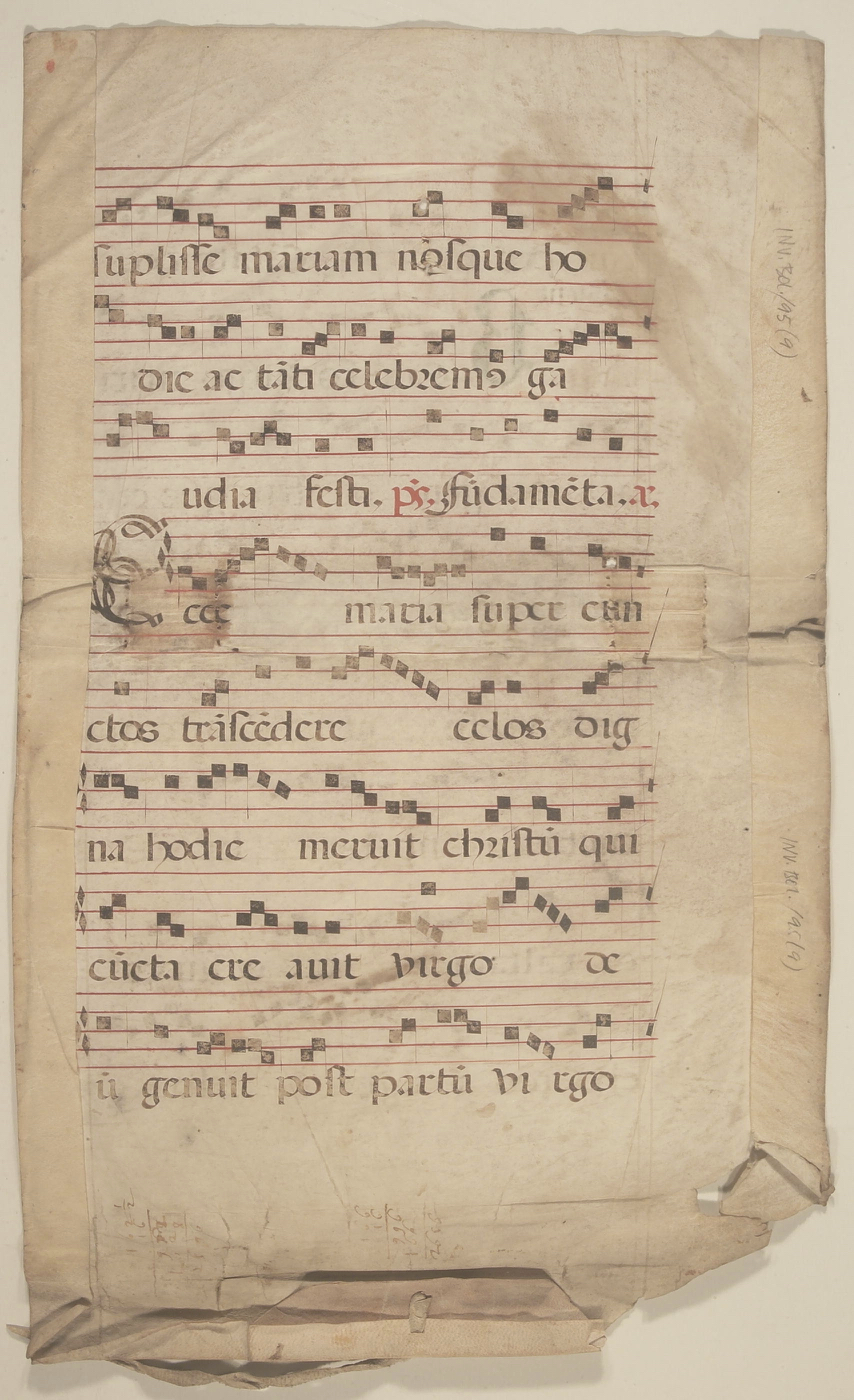 supliſſe mariam noſque ho
die ac tāti celebꝛemꝯ ga
udia feſti. pſ̄. fūdamēta. a.
Ecce maria ſuper cun
ctos trāſcēdere celos dig
na hodie meruit chꝛiſtū qui
cūcta cre auit virgo de
ū genuit poſt partū vi rgo
INV. BOL. 195 (9)
INV. BOL. 195 (9)